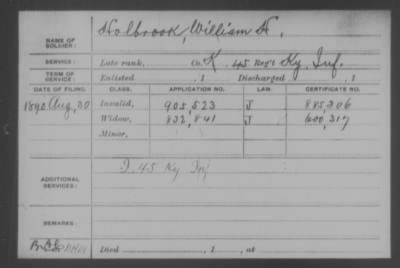 NAME OF SOLDIER: Holbrook, William H.
SERVICE: Late rank, Co. K. 45 Reg't Ky. Inf.
TERM OF SERVICE: Enlisted , 1 Discharged , 1
DATE OF FILING. CLASS. APPLICATION NO. LAW. CERTIFICATE NO.
1890 Aug, 30 Invalid, 905,523 J 885,306
Widow, 832,841 J 600,317
Minor,
ADDITIONAL SERVICES: I. 45 Ky Inf
REMARKS:
Died , 1 , at